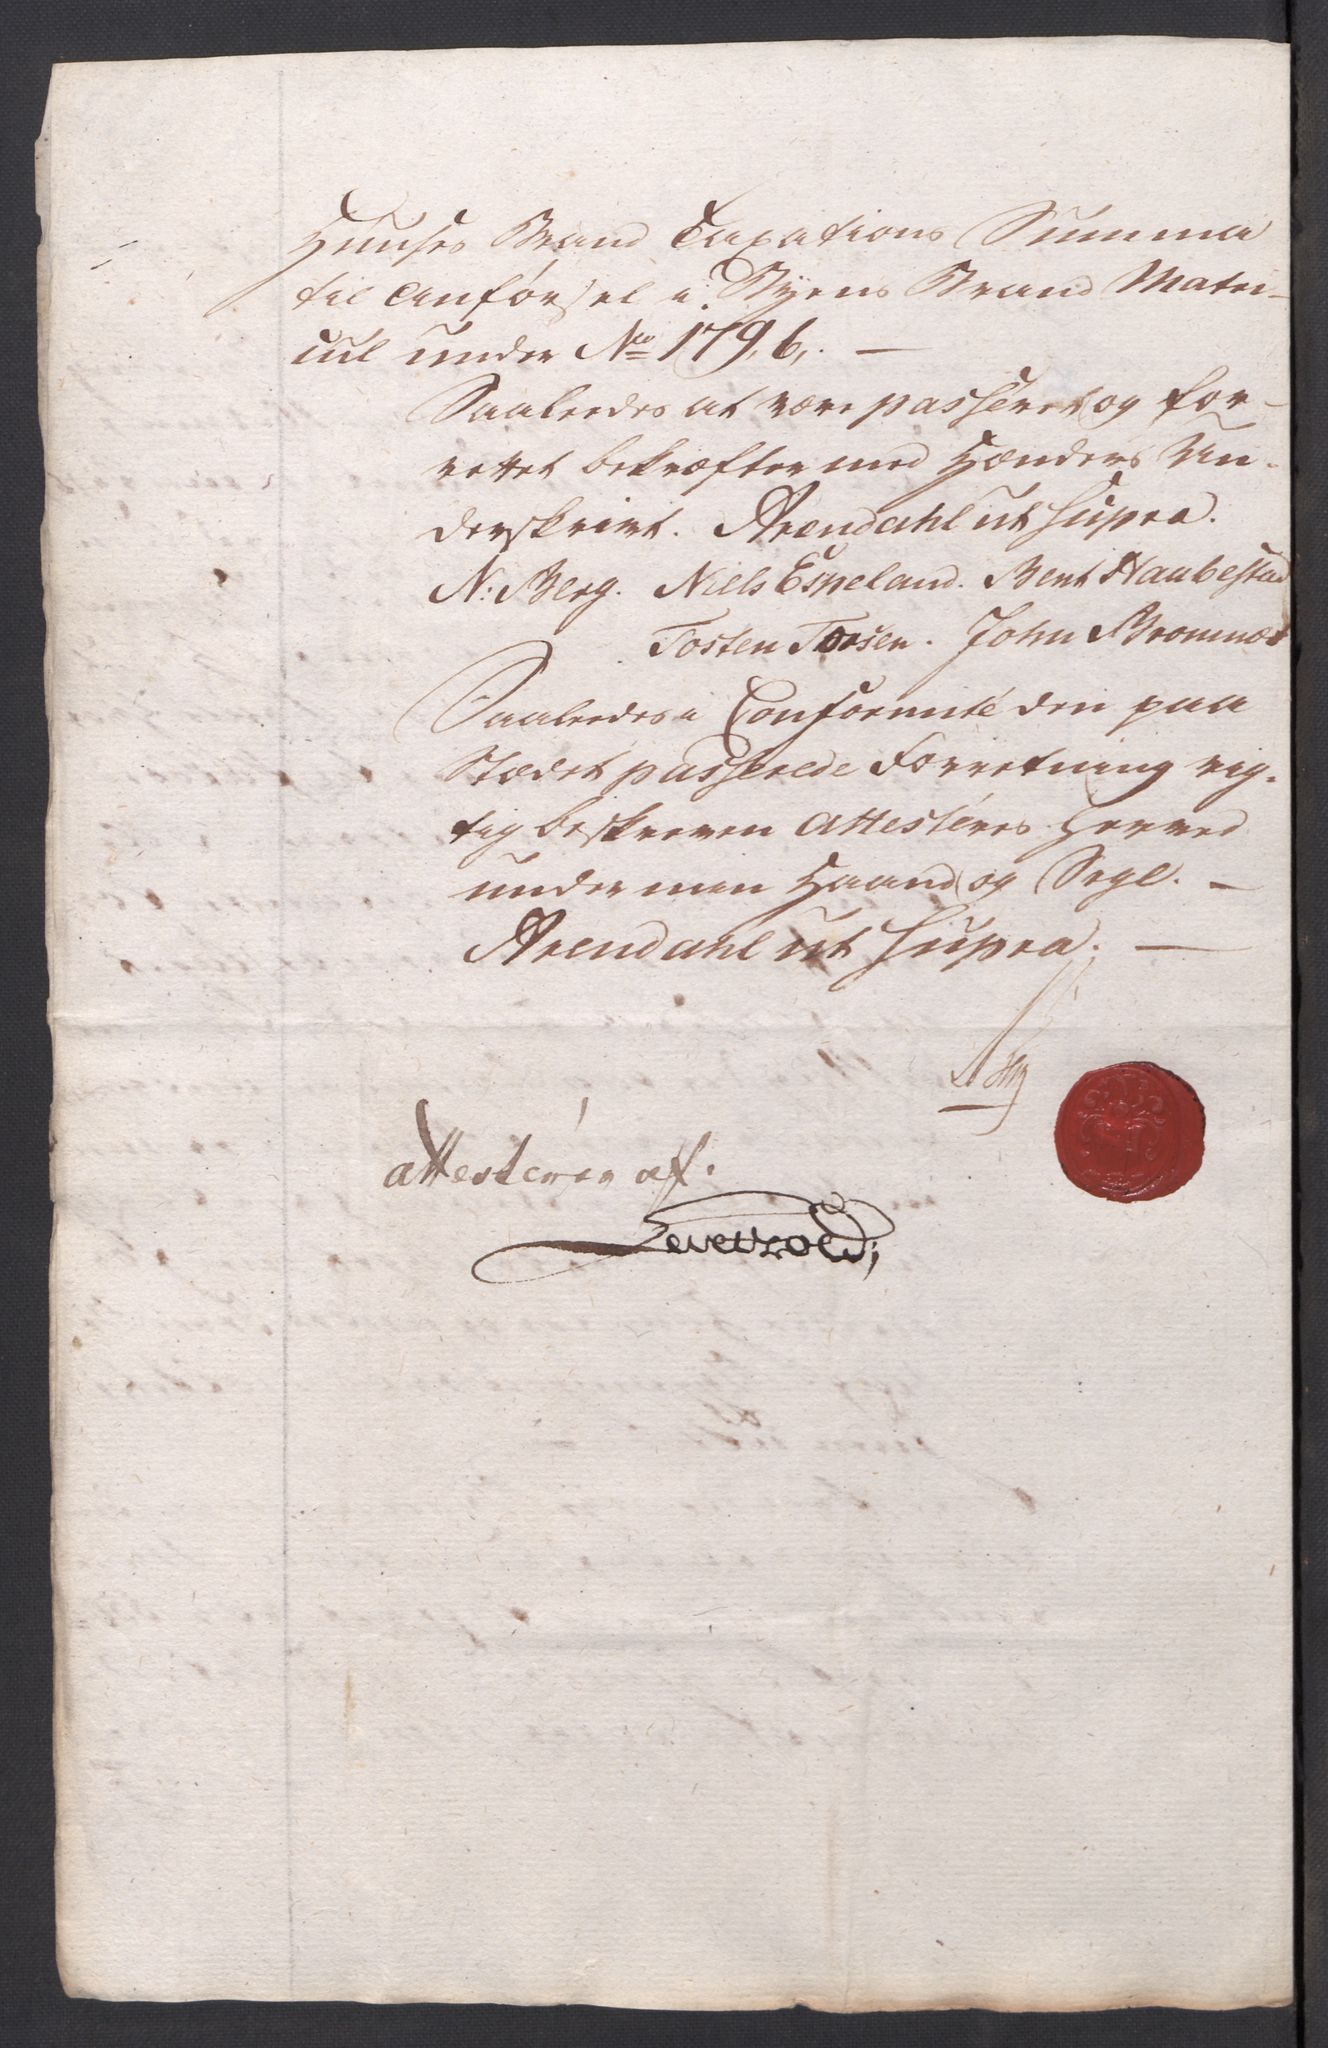 Huuses Brand Taxations Summa
til Anførsel i Byens Brand Matri-
cul under No 179,6,. —
Saaledes at være passeret og for-
rettet bekræfter med Hænders Un-
derskrivt. Arendahl ut supra.
N: Berg. Niels Espeland. Bent Haubestad
Tosten Torsen. John Bromnæs
Saaledes i Conformité den paa
Stædet passerede Forretning rig-
tig beskreven Attesteres herved
under min Haand og Segl. —
Arendahl ut supra. —
attesterer af.